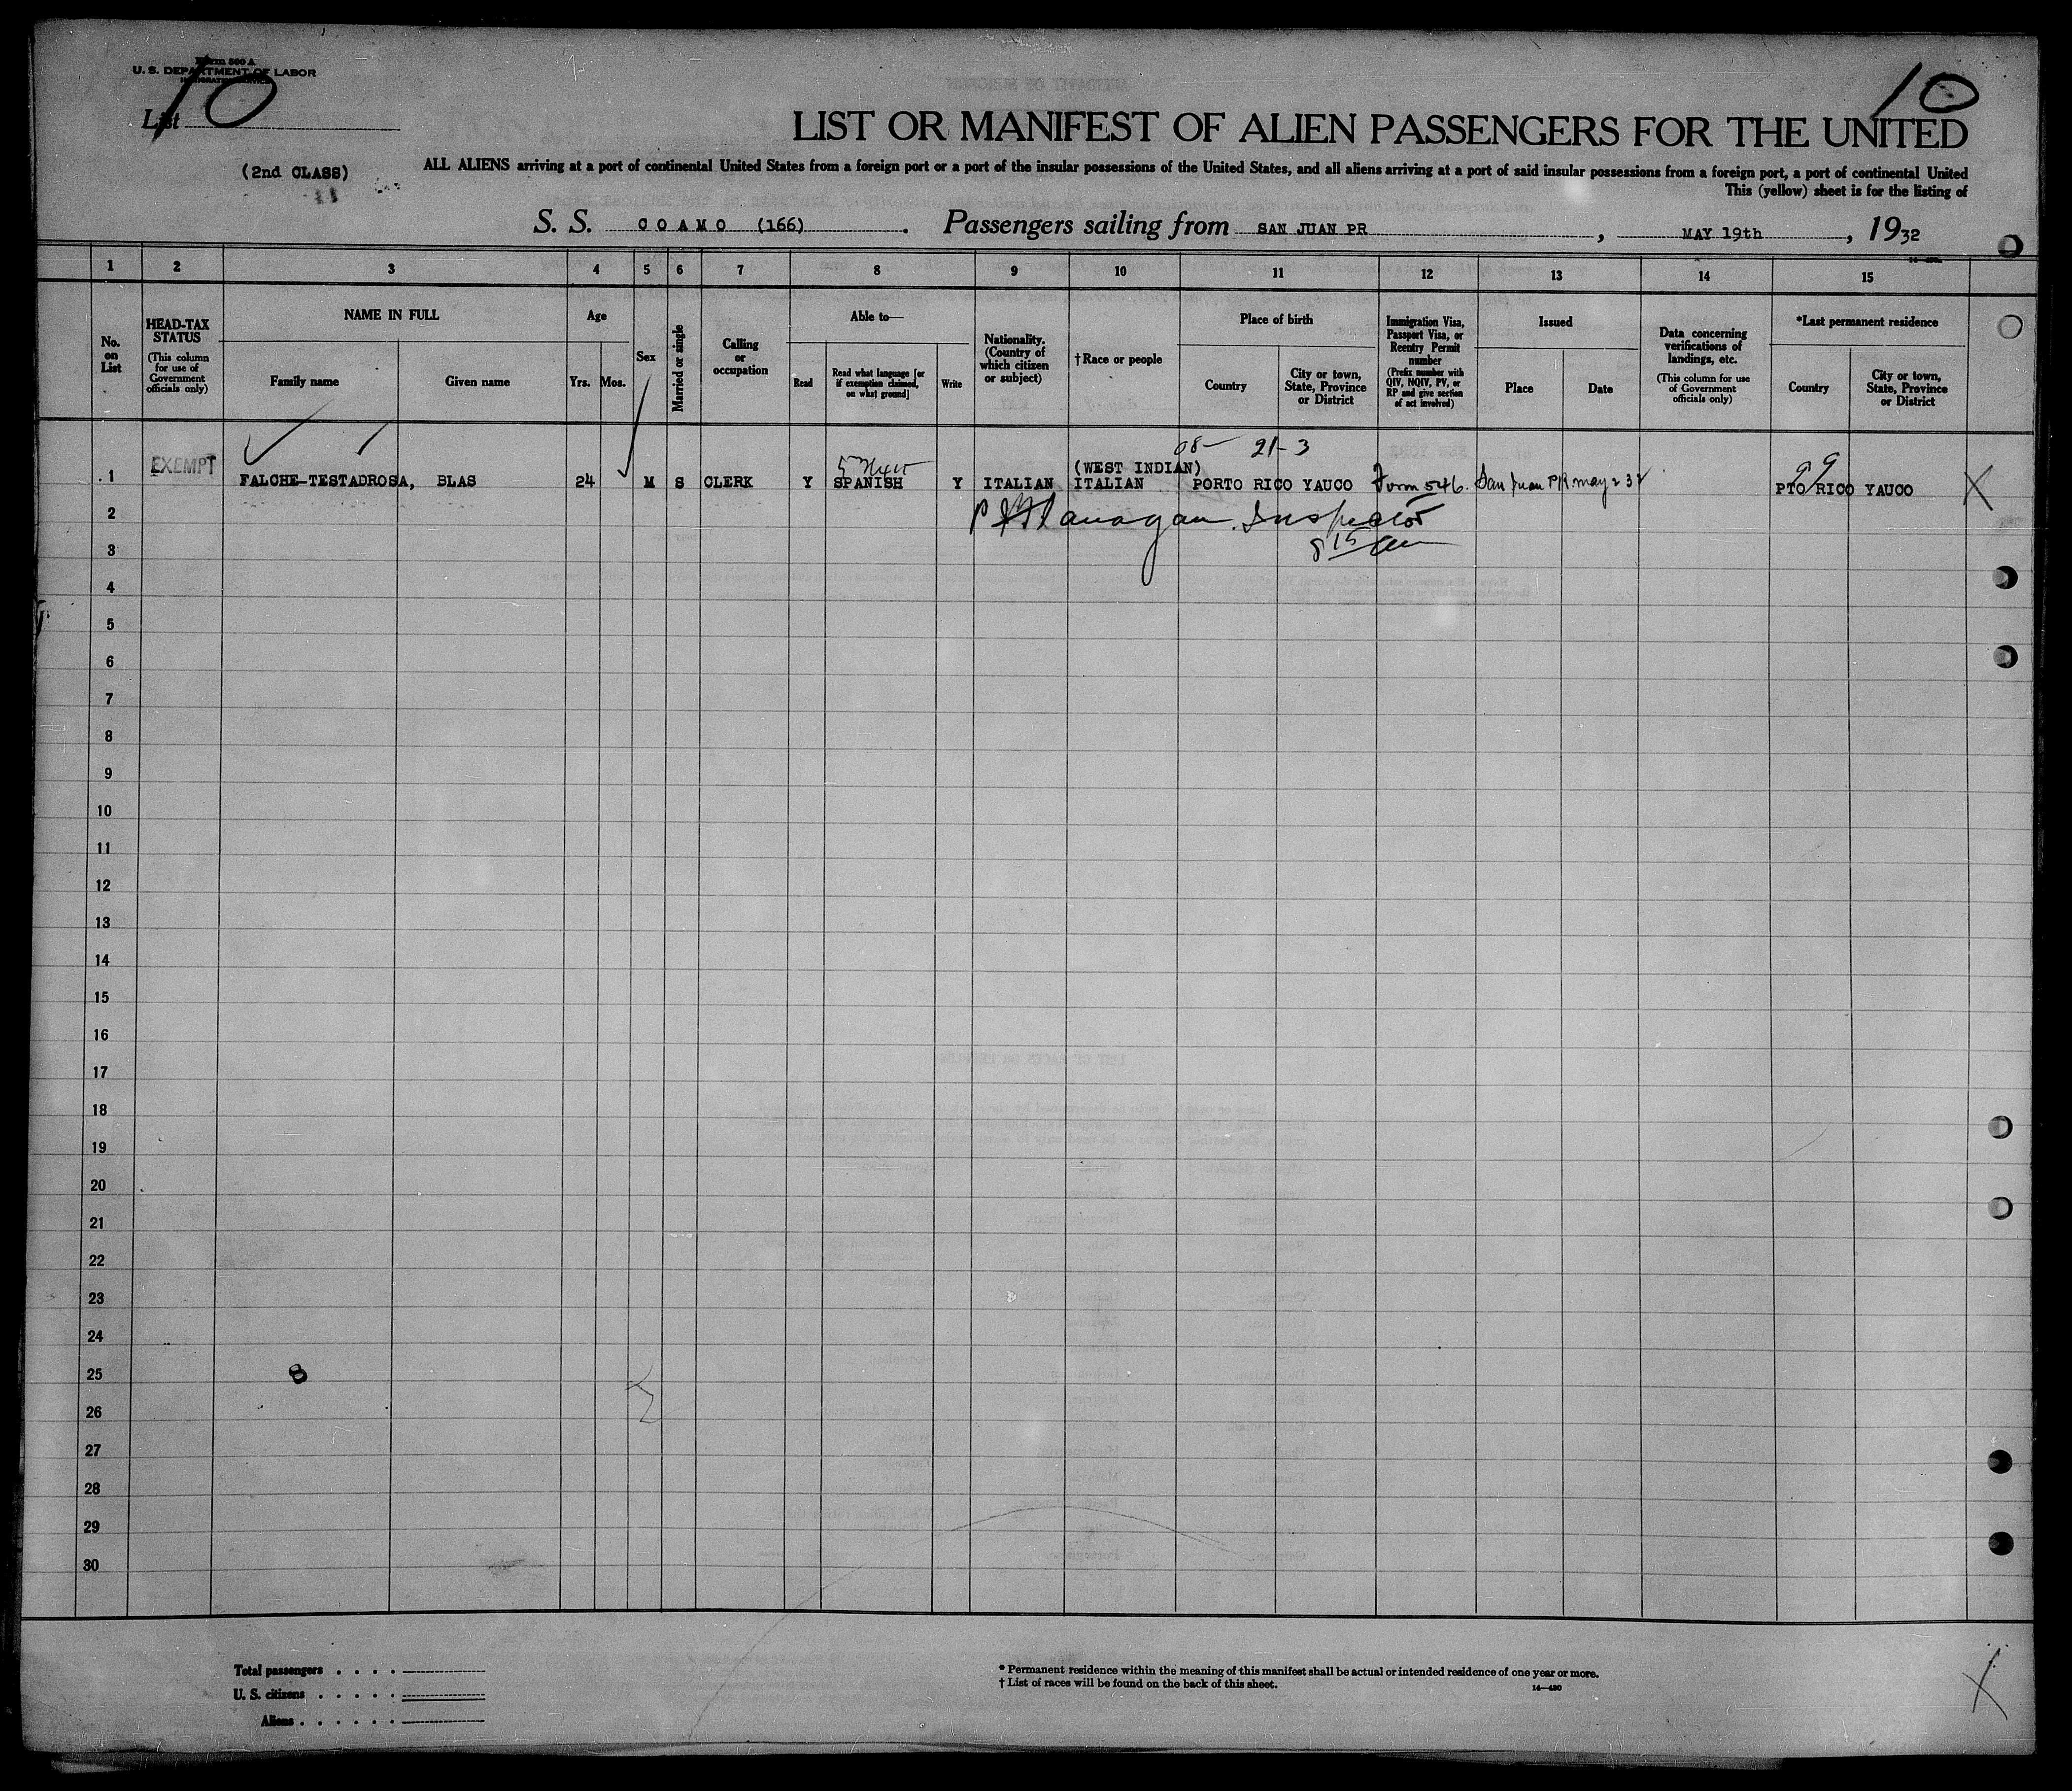 Form 500 A
U. S. DEPARTMENT OF LABOR
IMMIGRATION SERVICE
List 10
10
LIST OR MANIFEST OF ALIEN PASSENGERS FOR THE UNITED
(2nd CLASS)
ALL ALIENS arriving at a port of continental United States from a foreign port or a port of the insular possessions of the United States, and all aliens arriving at a port of said insular possessions from a foreign port, a port of continental United
This (yellow) sheet is for the listing of
S. S. COAMO (166) . Passengers sailing from SAN JUAN PR , MAY 19th , 1932
1 2 3 4 5 6 7 8 9 10 11 12 13 14 15
No. on List
HEAD-TAX STATUS
(This column for use of Government officials only)
NAME IN FULL
Family name
Given name
Age
Yrs.
Mos.
Sex
Married or single
Calling or occupation
Able to—
Read
Read what language [or if exemption claimed, on what ground]
Write
Nationality. (Country of which citizen or subject)
†Race or people
Place of birth
Country
City or town, State, Province or District
Immigration Visa, Passport Visa, or Reentry Permit number
(Prefix number with QIV, NQIV, PV, or RP and give section of act involved)
Issued
Place
Date
Data concerning verifications of landings, etc.
(This column for use of Government officials only)
*Last permanent residence
Country
City or town, State, Province or District
08- 21-3
(WEST INDIAN)
1 EXEMPT FALCHE-TESTADROSA, BLAS 24 M S CLERK Y SPANISH Y ITALIAN ITALIAN PORTO RICO YAUCO Form 546. San Juan PR may 2 32 PTO RICO YAUCO X
99
2 Flanagan. Inspector
3 8 15 am
4
5
6
7
8
9
10
11
12
13
14
15
16
17
18
19
20
21
22
23
24
25 8
26
27
28
29
30
Total passengers . . . .
U. S. citizens . . . . .
Aliens . . . . . .
* Permanent residence within the meaning of this manifest shall be actual or intended residence of one year or more.
† List of races will be found on the back of this sheet.
14—430
X